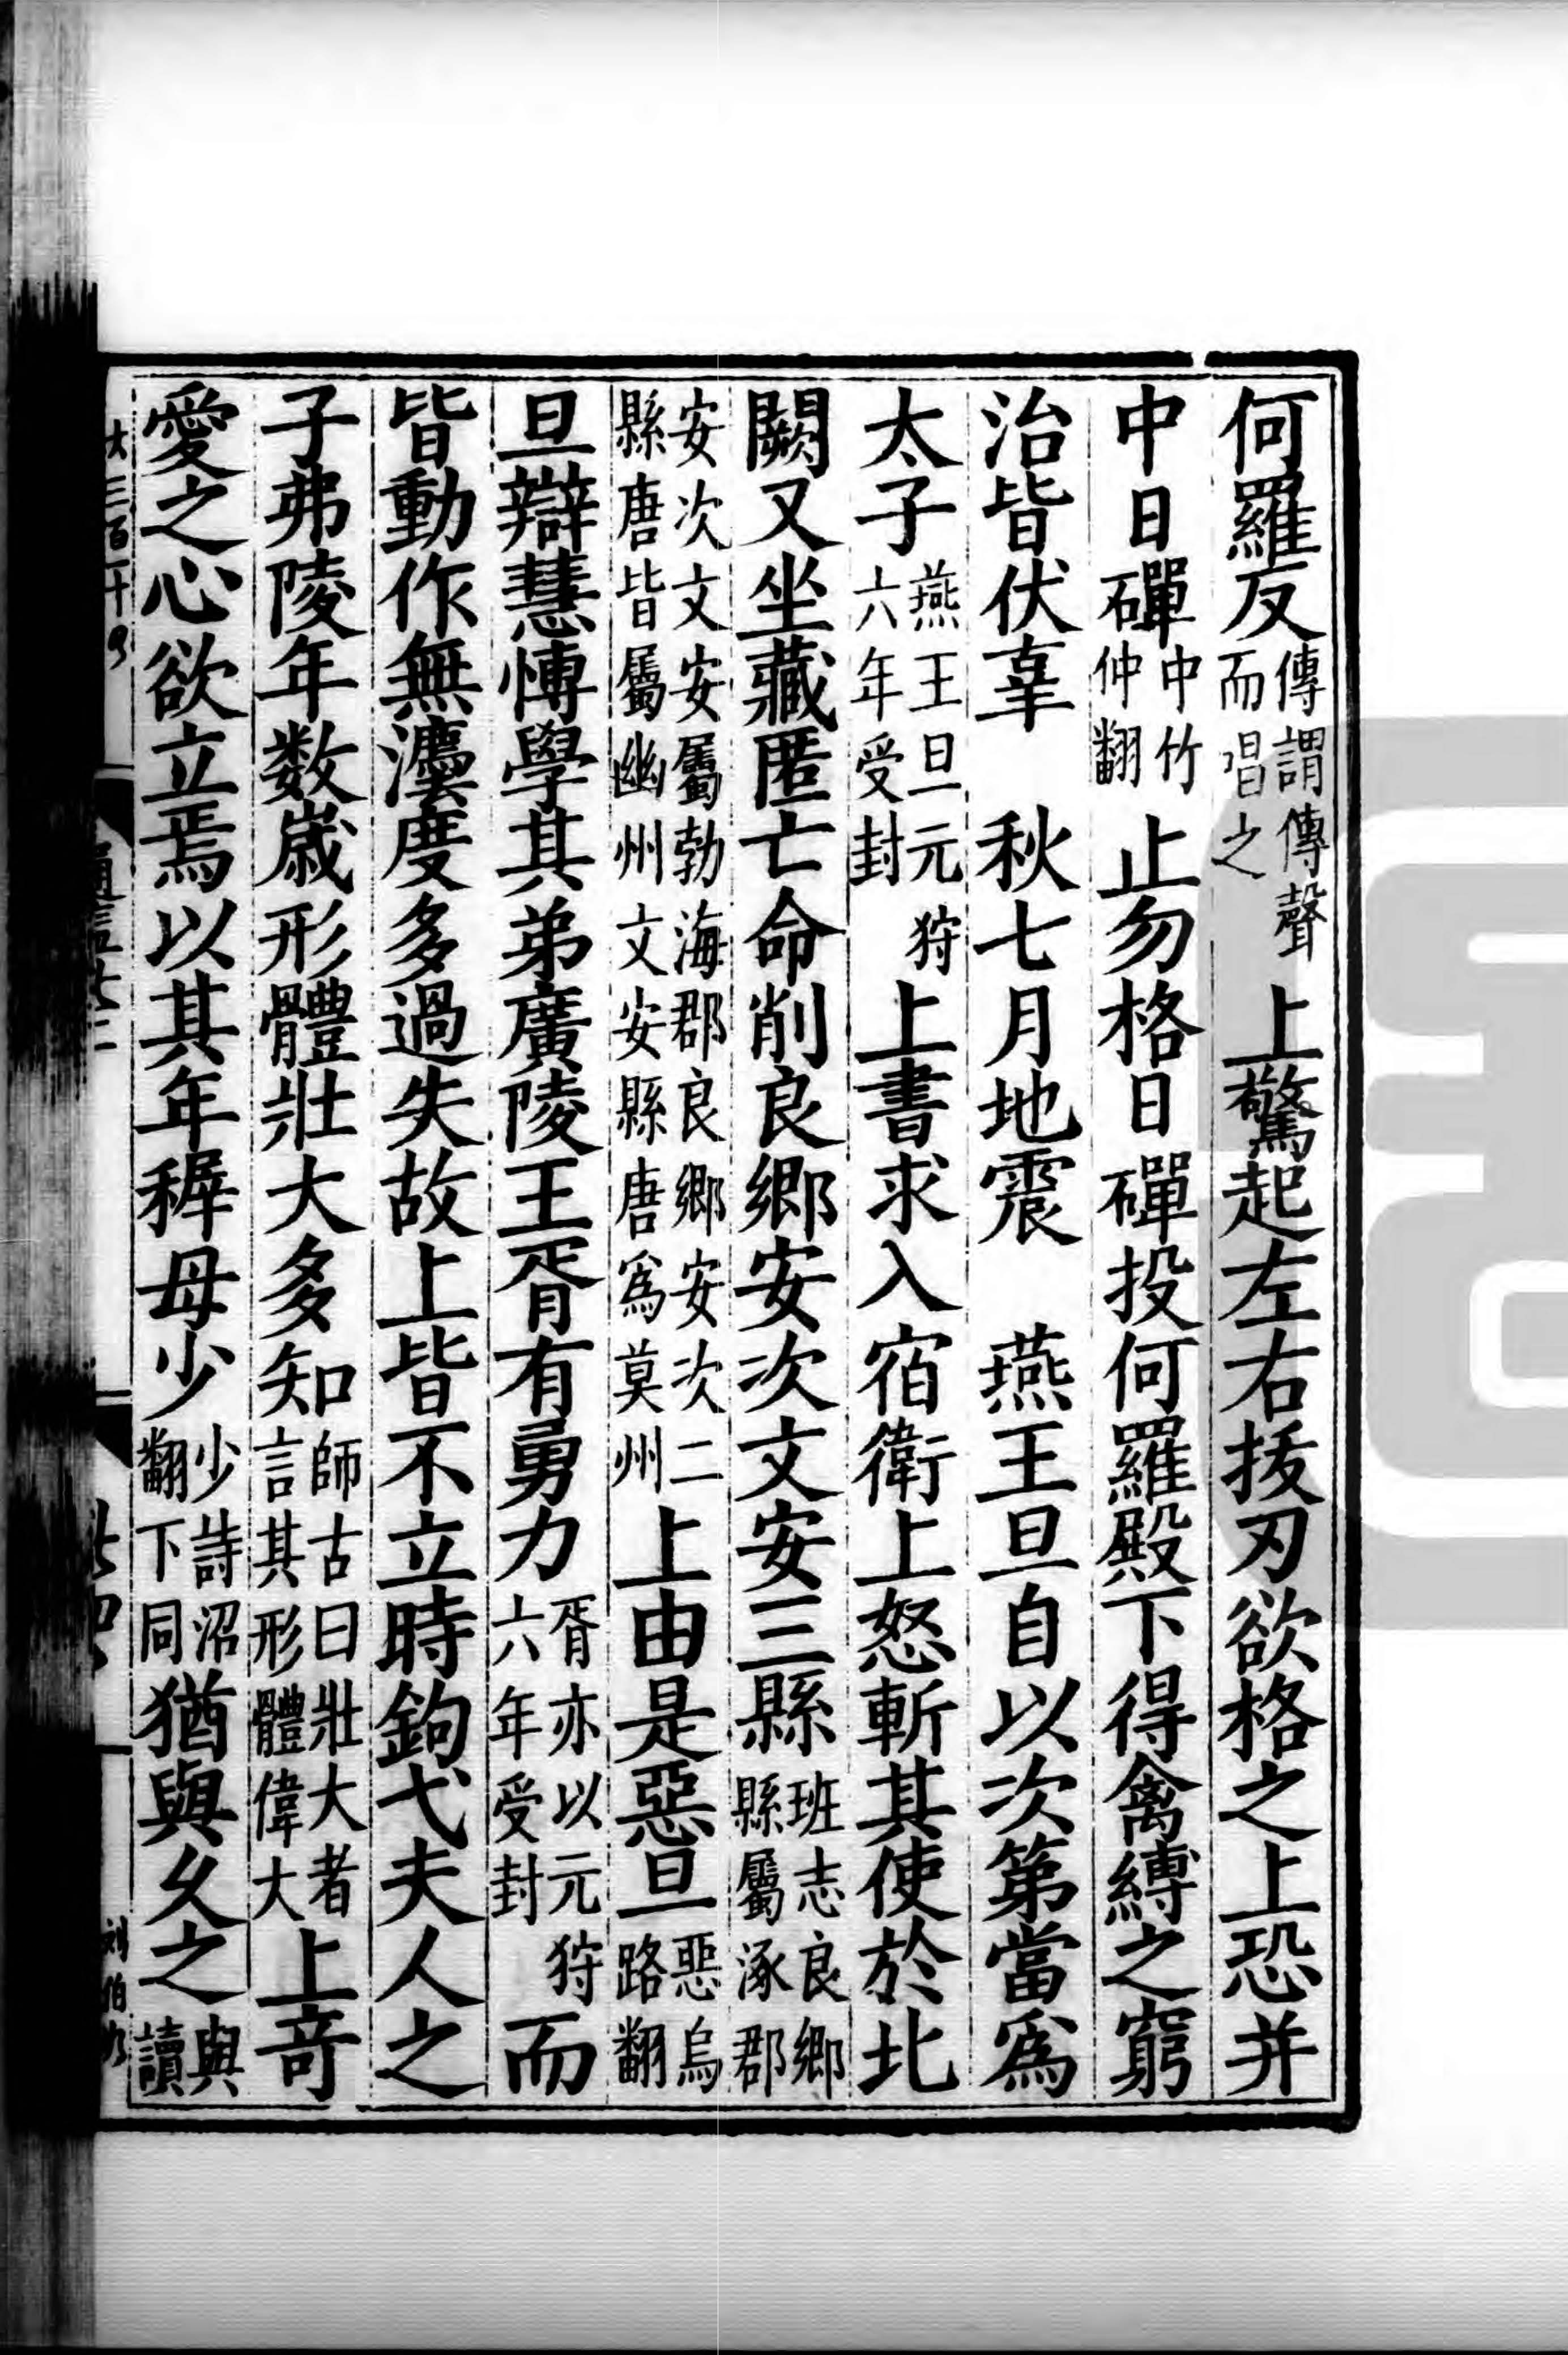 何羅反傳謂傳聲而唱之上驚起左右拔刃欲格之上恐并
中日磾中竹仲翻止勿格日磾投何羅殿下得禽縛之窮
治皆伏辜　秋七月地震　燕王旦自以次第當爲
太子燕王旦元狩六年受封上書求入宿衛上怒斬其使於北
闕又坐藏匿亡命削良鄉安次文安三縣班志良鄉縣屬涿郡
安次文安屬勃海郡良鄉安次二縣唐皆屬幽州文安縣唐爲莫州上由是惡旦惡烏路翻
旦辯慧博學其弟廣陵王胥有勇力胥亦以元狩六年受封而
皆動作無灋度多過失故上皆不立時鉤弋夫人之
子弗陵年数歲形體壯大多知師古曰壯大者言其形體偉大上竒
愛之心欲立焉以其年穉母少少詩沼翻下同猶與久之與讀
大三百一十